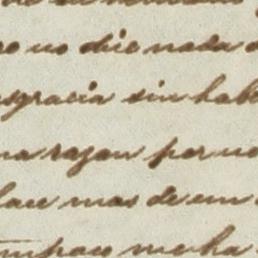 ro no dic nada
sgracia sin hab
na razon por no
hace mas de un
Tampoco me ha